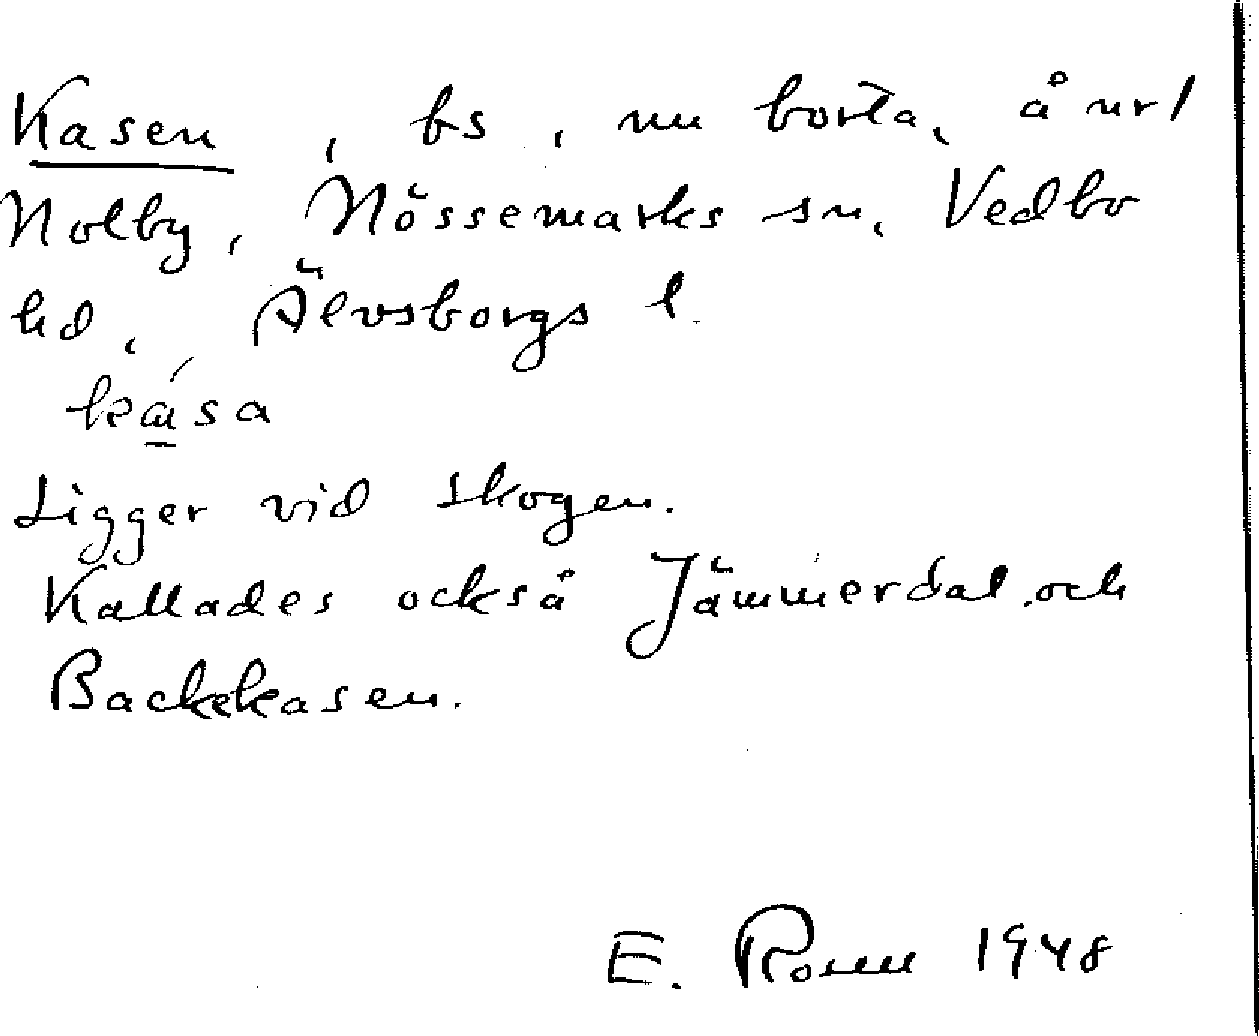 Kasen, bs, nu borta, å nr 1
Nolby, Nössemarks sn, Vedbo
hd, Älvsborgs l.
Ligger vid skogen.
Kallades också Jämmerdal och
Backekasen.
E. Rosell 1948